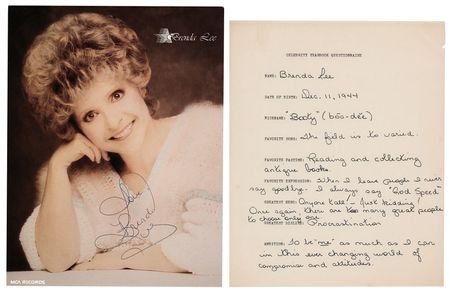 Brenda Lee
Love
Brenda
Lee
MCA RECORDS
CELEBRITY YEARBOOK QUESTIONNAIRE
NAME: Brenda Lee
DATE OF BIRTH: Dec. 11, 1944
NICKNAME: "Booty" (bōō-dēē)
FAVORITE SONG: The field is to varied.
FAVORITE PASTIME: Reading and collecting
antique books.
FAVORITE EXPRESSION: When I leave people I never
say goodbye. I always say "God Speed"
GREATEST HERO: Anyone tall! - Just kidding!
Once again, there are too many great people
to choose only one.
GREATEST DISLIKE: Procrastination
AMBITION: To be "me" as much as I can
in this ever changing world of
compromise and attitudes.